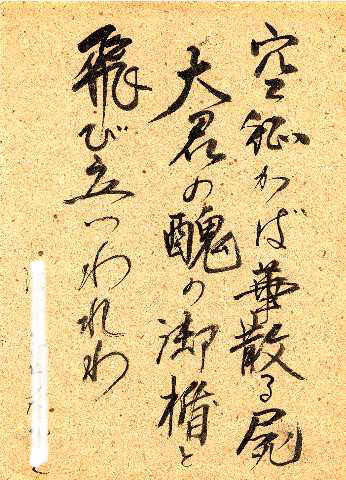 空征かば華散る屍
大君の醜の御楯と
飛び立つわれわ